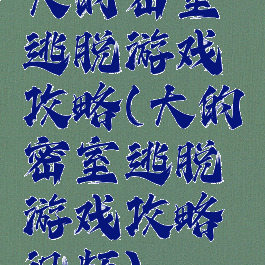 大的密室
逃脱游戏
攻略(大的
密室逃脱
游戏攻略
视频)